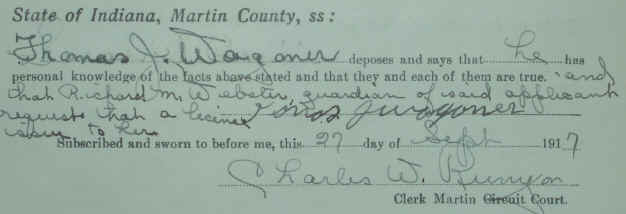 State of Indiana, Martin County, ss:
Thomas J. Wagoner deposes and says that he has
personal knowledge of the facts above stated and that they and each of them are true. and
that Richard M. Webster, guardian of said applicant
requests that a license Thos J Wagoner
issue to him
Subscribed and sworn to before me, this 27 day of Sept 1917
Charles W. Runyon
Clerk Martin Circuit Court.